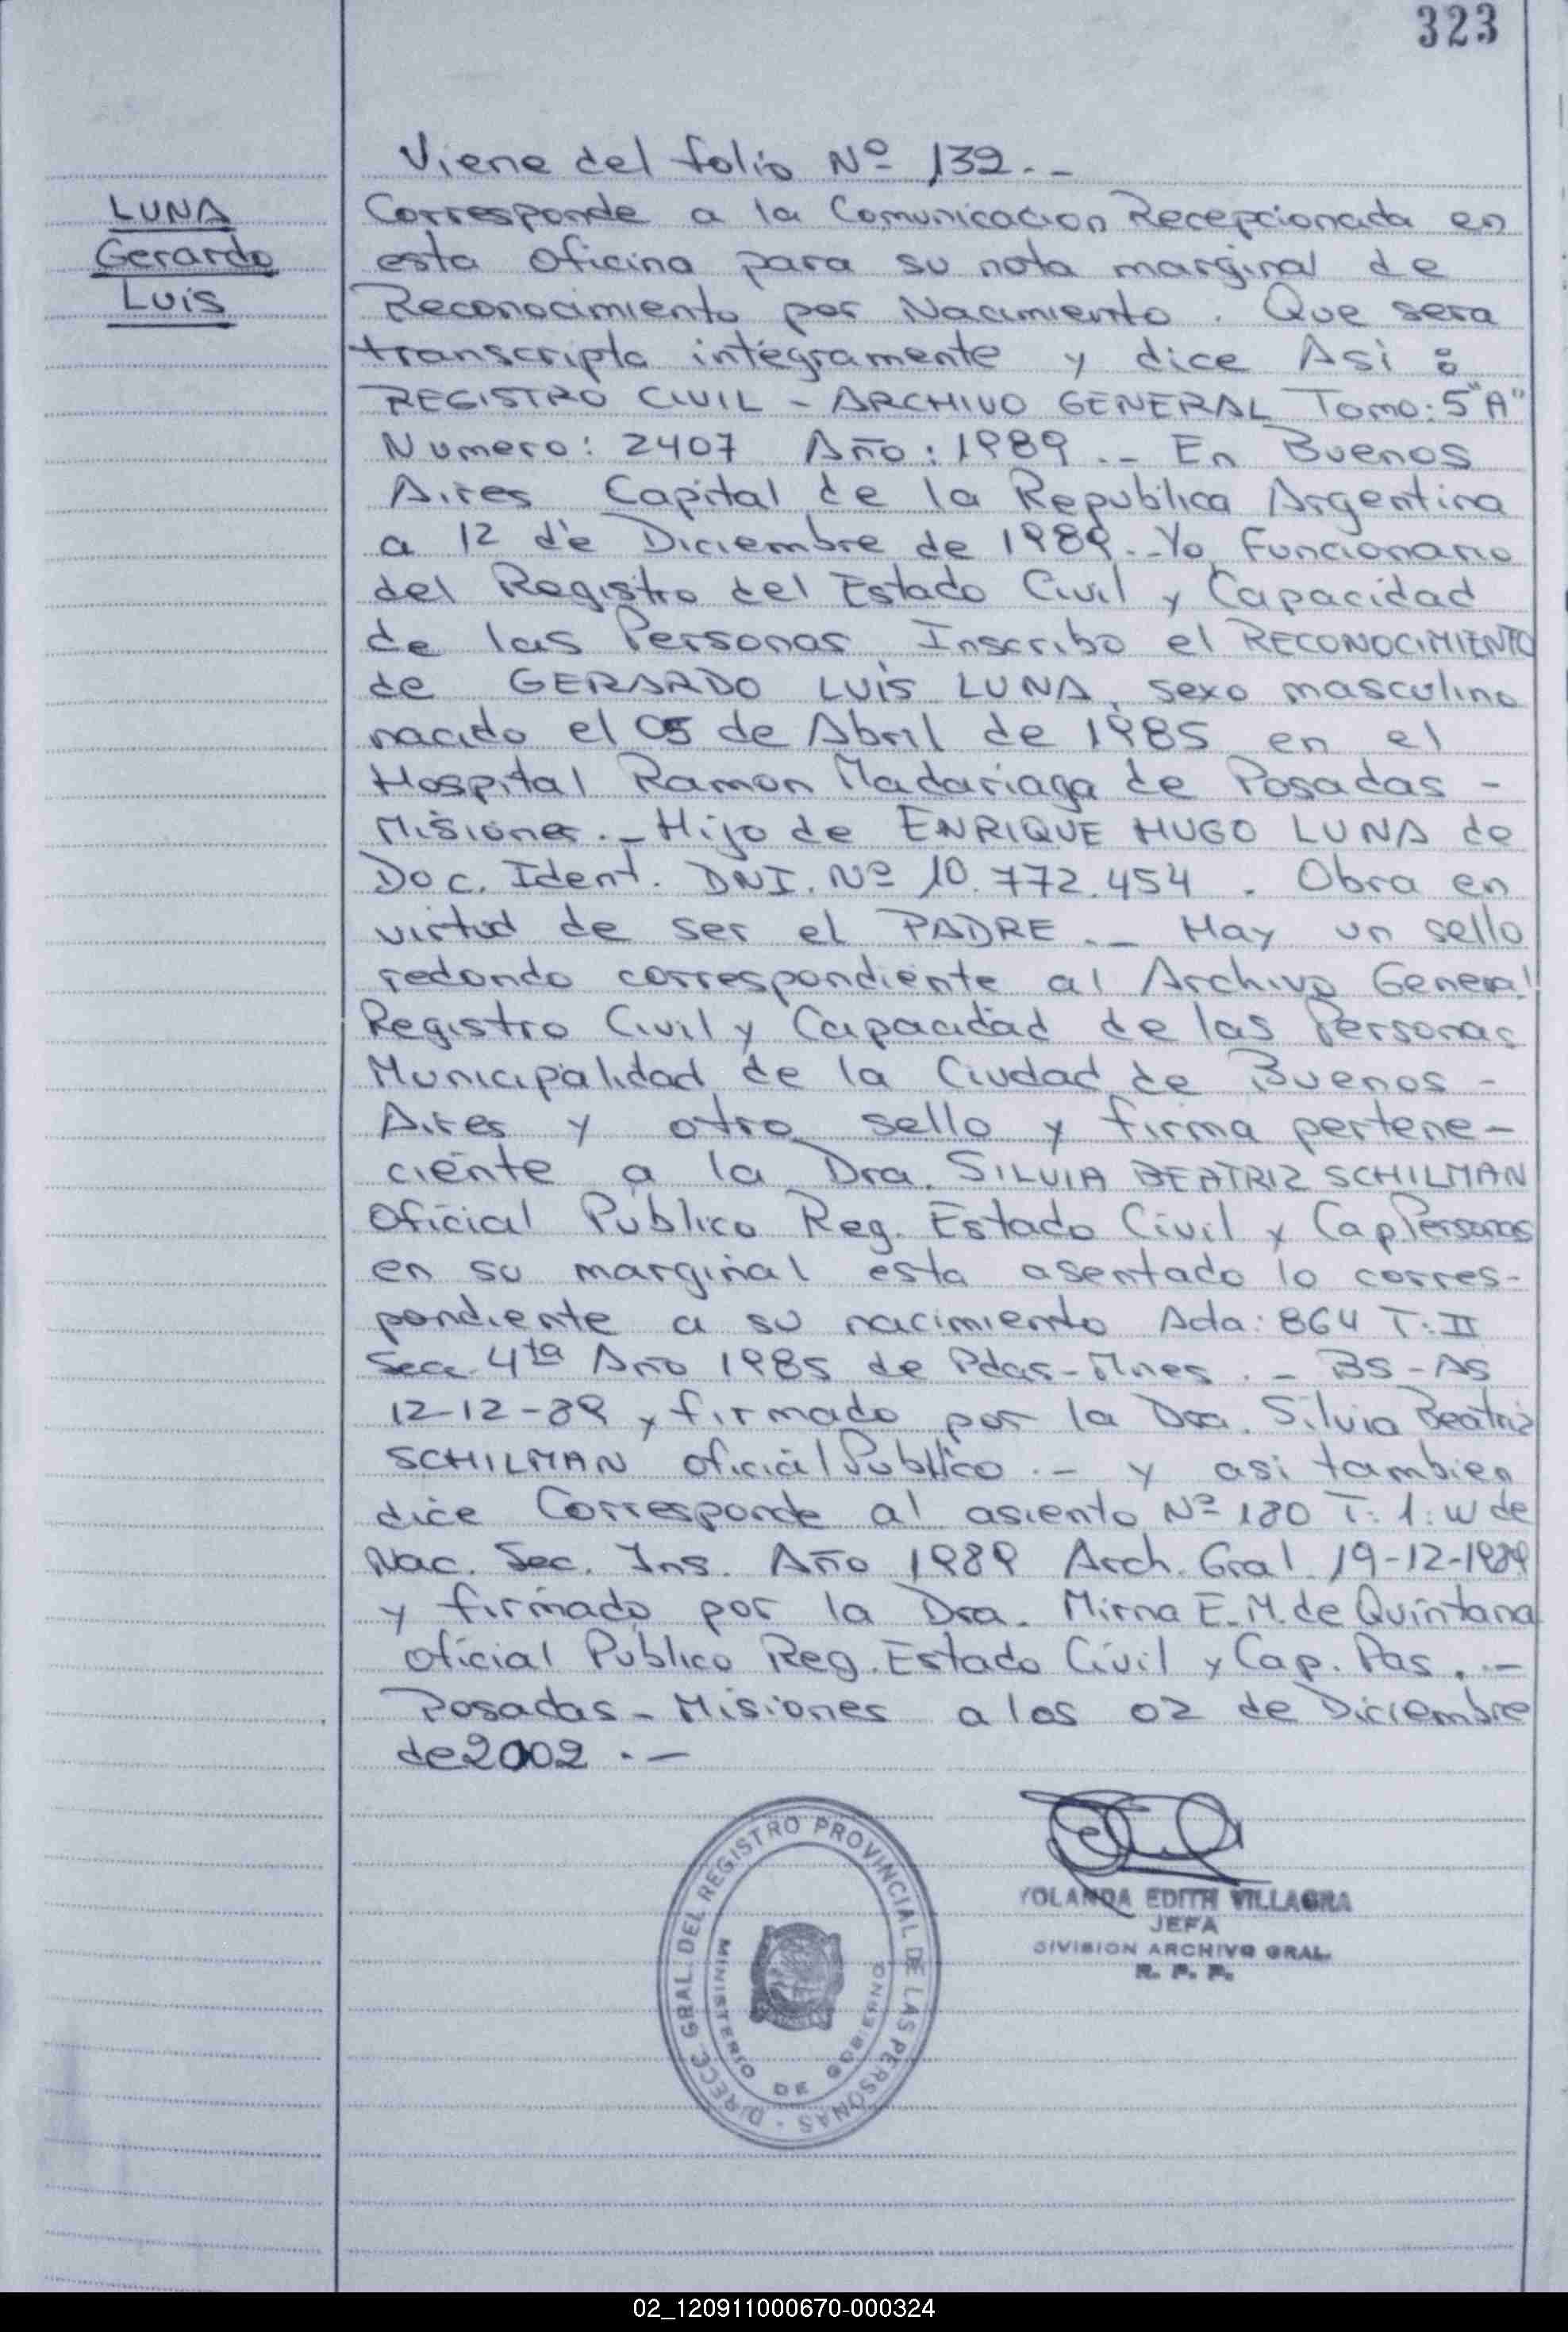 323
Viene del folio Nº 132.-
LUNA
Gerardo
Luis
Corresponde a la Comunicacion Recepcionada en
esta Oficina para su nota marginal de
Reconocimiento por Nacimiento. Que sera
transcripta integramente y dice Asi:
REGISTRO CIVIL - ARCHIVO GENERAL Tomo: 5"A"
Numero: 2407 Año: 1989.- En Buenos
Aires Capital de la Republica Argentina
a 12 de Diciembre de 1989.- Yo, Funcionario
del Registro del Estado Civil y Capacidad
de las Personas, Inscribo el RECONOCIMIENTO
de GERARDO LUIS LUNA, sexo masculino
nacido el 05 de Abril de 1985 en el
Hospital Ramon Madariaga de Posadas -
Misiones.- Hijo de ENRIQUE HUGO LUNA de
Doc. Ident. DNI. Nº 10.772.454. Obra en
virtud de ser el PADRE.- Hay un sello
redondo correspondiente al Archivo General
Registro Civil y Capacidad de las Personas
Municipalidad de la Ciudad de Buenos -
Aires y otro sello y firma pertene-
ciente a la Dra. SILVIA BEATRIZ SCHILMAN
Oficial Publico Reg. Estado Civil y Cap Personas
en su marginal esta asentado lo corres-
pondiente a su nacimiento Acta: 864 T: II
Secc 4ta Año 1985 de Pdas-Mnes.- BS-AS
12-12-89 y firmado por la Dra. Silvia Beatriz
SCHILMAN oficial Publico.- y asi tambien
dice Corresponde al asiento Nº 180 T: 1: W de
Nac. Sec. Ins. Año 1989 Arch. Gral 19-12-1989
y firmado por la Dra. Mirna E.M. de Quintana
oficial Publico Reg. Estado Civil y Cap. Pas..-
Posadas - Misiones a los 02 de Diciembre
de 2002.-
DIRECC. GRAL. DEL REGISTRO PROVINCIAL DE LAS PERSONAS -
MINISTERIO DE GOBIERNO
YOLANDA EDITH VILLAGRA
JEFA
DIVISION ARCHIVO GRAL.
R. P. P.
02_120911000670-000324